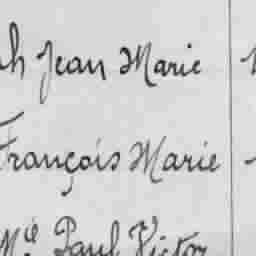 h Jean Marie
François Marie
Mie Paul Victor